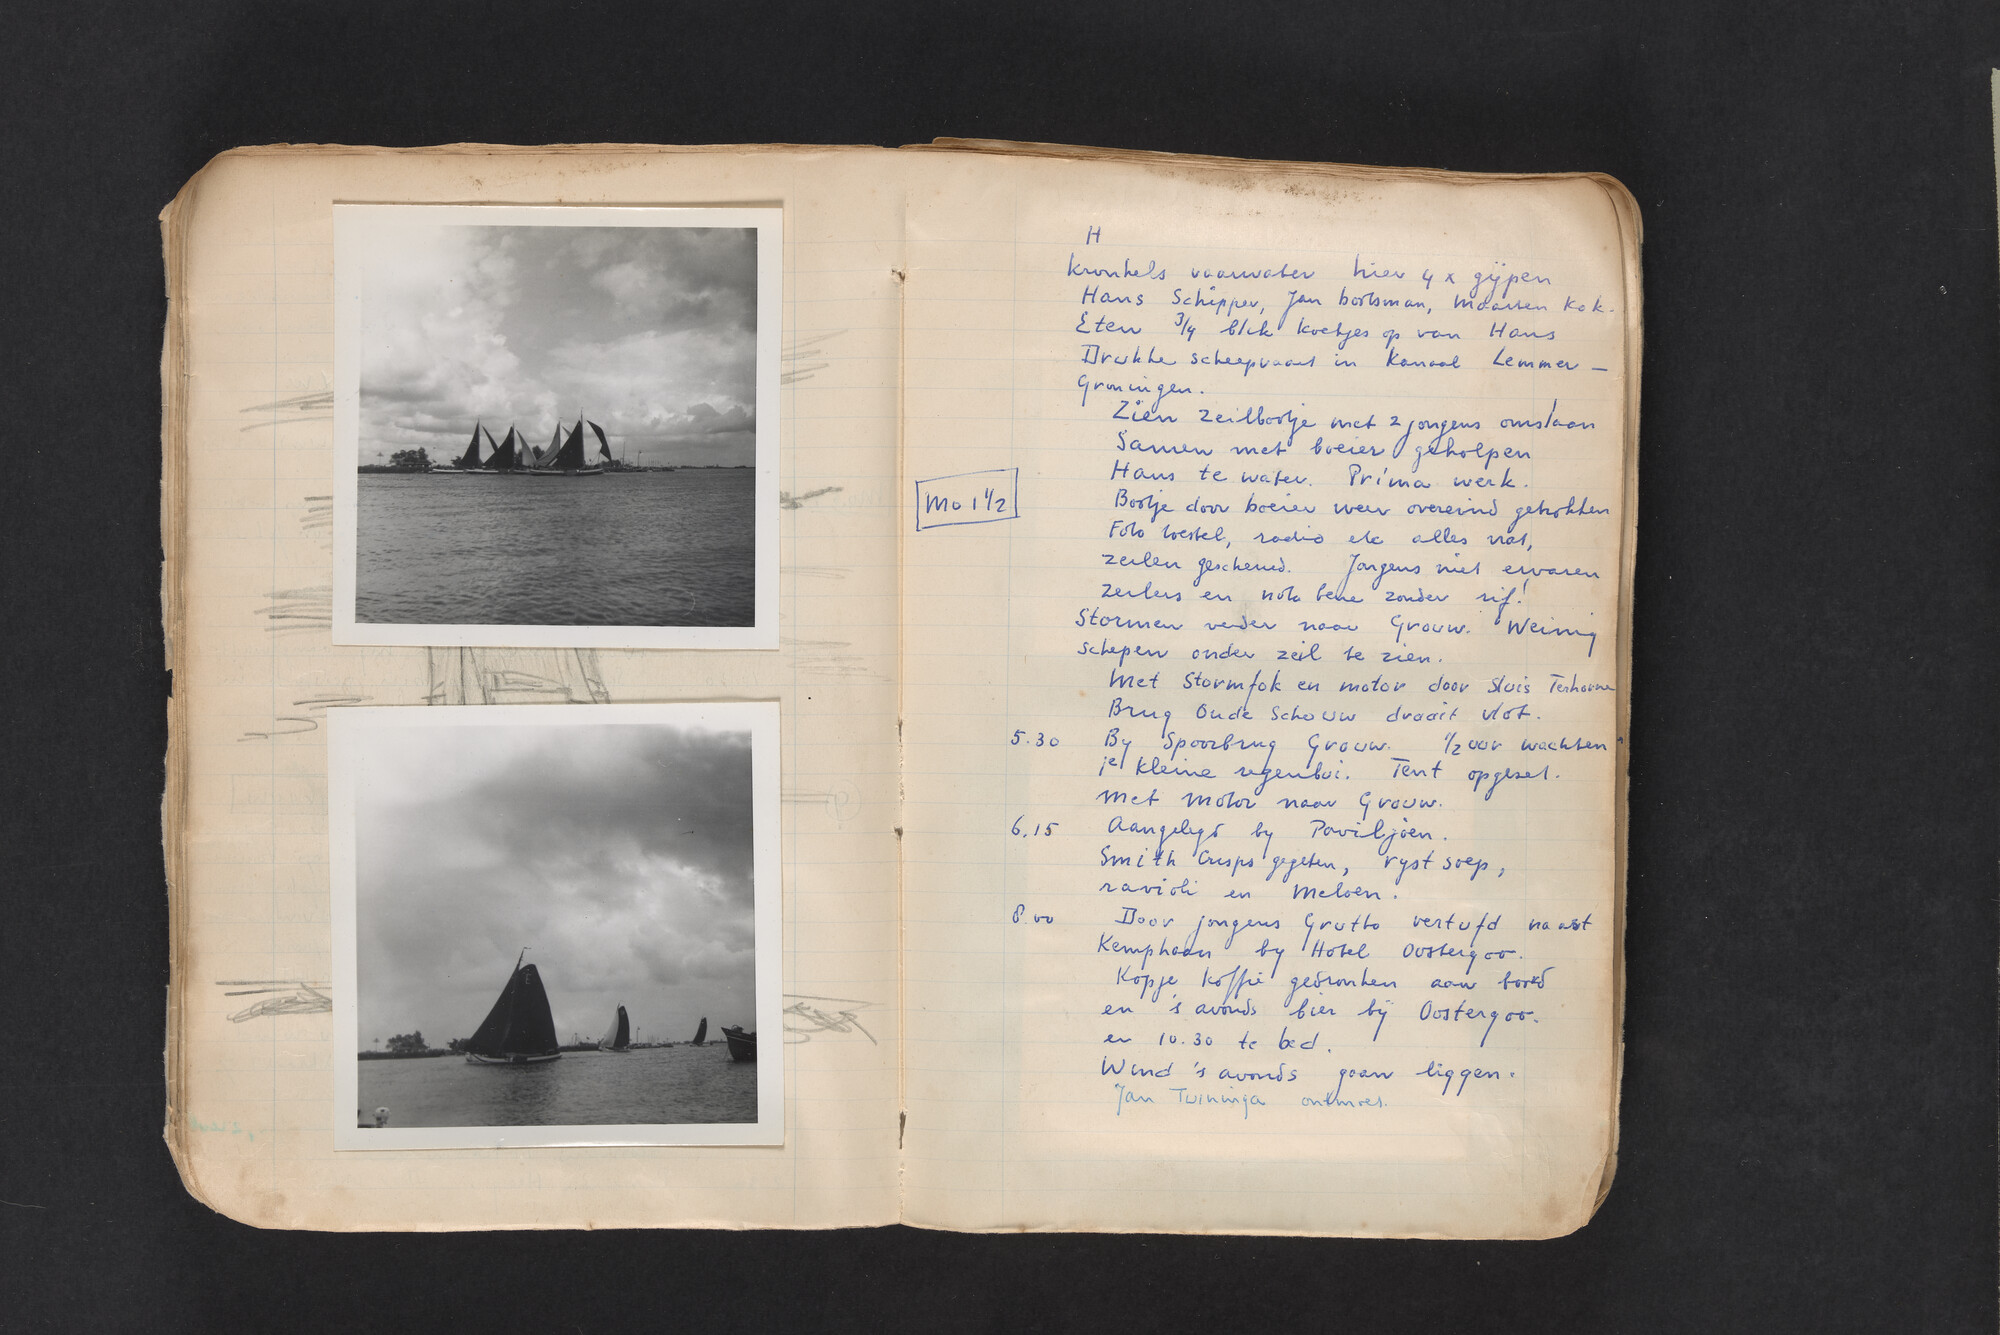 H
kronkels vaarwater hier 4 x gijpen
Hans Schipper, Jan bootsman, Maarten Kok.
Eten 3/4 blik koekjes op van Hans
Drukke scheepvaart in Kanaal Lemmer –
Groningen.
Zien zeilbootje met 2 jongens omslaan
Samen met boeier geholpen
Hans te water. Prima werk.
Mo 1 1/2
Bootje door boeier weer overeind getrokken
Foto toestel, radio etc alles nat,
zeilen gescheurd. Jongens niet ervaren
zeilers en nota bene zonder rif!
Stormen verder naar Grouw. Weinig
schepen onder zeil te zien.
Met Stormfok en motor door Sluis Terhorne
Brug Oude Schouw draait vlot.
5.30 By Spoorbrug Grouw. 1/2 uur wachten
1e kleine regenbui. Tent opgezet.
Met Motor naar Grouw.
6.15 Aangelegd by Paviljoen.
Smith Crisps gegeten, ryst soep,
ravioli en Meloen.
8.00 Door jongens Grutto vertuid naast
Kemphaan by Hotel Oostergoo.
Kopje koffie gedronken aan boord
en 's avonds bier bij Oostergoo.
en 10.30 te bed.
Wind 's avonds gaan liggen.
Jan Tuininga ontmoet.